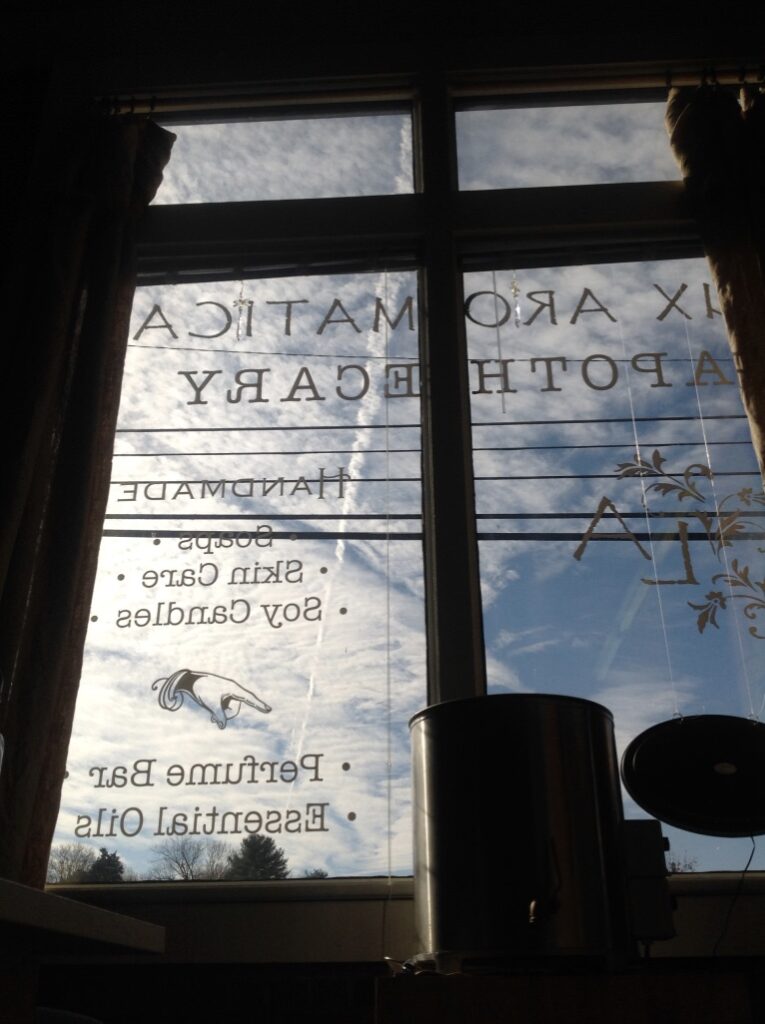 X AROMATICA
APOTHECARY
HANDMADE
• Soaps •
• Skin Care •
• Soy Candles •
• Perfume Bar •
• Essential Oils
L A